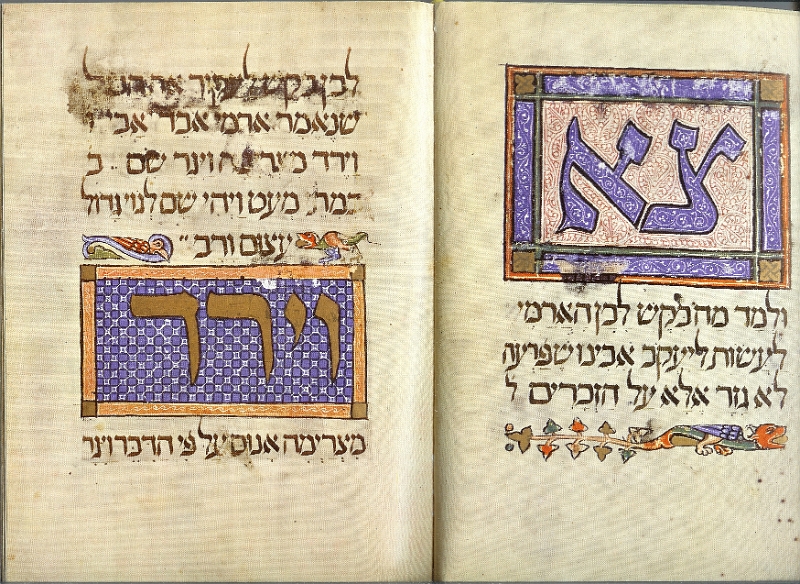 צא
ולמד מה בקש לבן הארמי
לעשות ליעקב אבינו שפרעה
לא גזר אלא על הזכרים ל
לבן בקש לעקור את הכל
שנאמר ארמי אבד אבי
וירד מצרימה ויגר שם ב
במתי מעט ויהי שם לגוי גדול
עצום ורב
וירד
מצרימה אנוס על פי הדבר ויגר